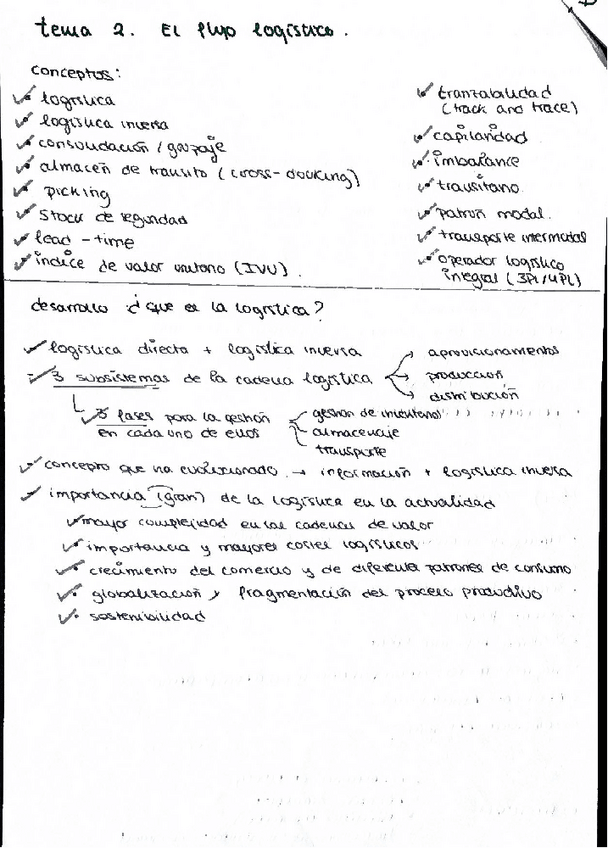 tema 2. El flujo logístico.
conceptos:
logística
logística inversa
consolidación / grupaje
almacén de tránsito (cross-docking)
picking
stock de seguridad
lead-time
índice de valor unitario (IVU).
tranzabilidad
(track and trace)
capilaridad
imbalance
transitario
patrón modal.
transporte intermodal
operador logístico
integral (3PL/4PL)
desarrollo ¿que es la logística?
logística directa + logística inversa
3 subsistemas de la cadena logística
aprovicionamento
producción
distribución
3 fases para la gestión
en cada uno de ellos
gestión de inventario
almacenaje
transporte
concepto que ha evolucionado → información + logística inversa
importancia (gran) de la logística en la actualidad
mayor complejidad en las cadenas de valor
importancia y mayores costes logísticos
crecimiento del comercio y de diferentes patrones de consumo
globalización y fragmentación del proceso productivo
sostenibilidad